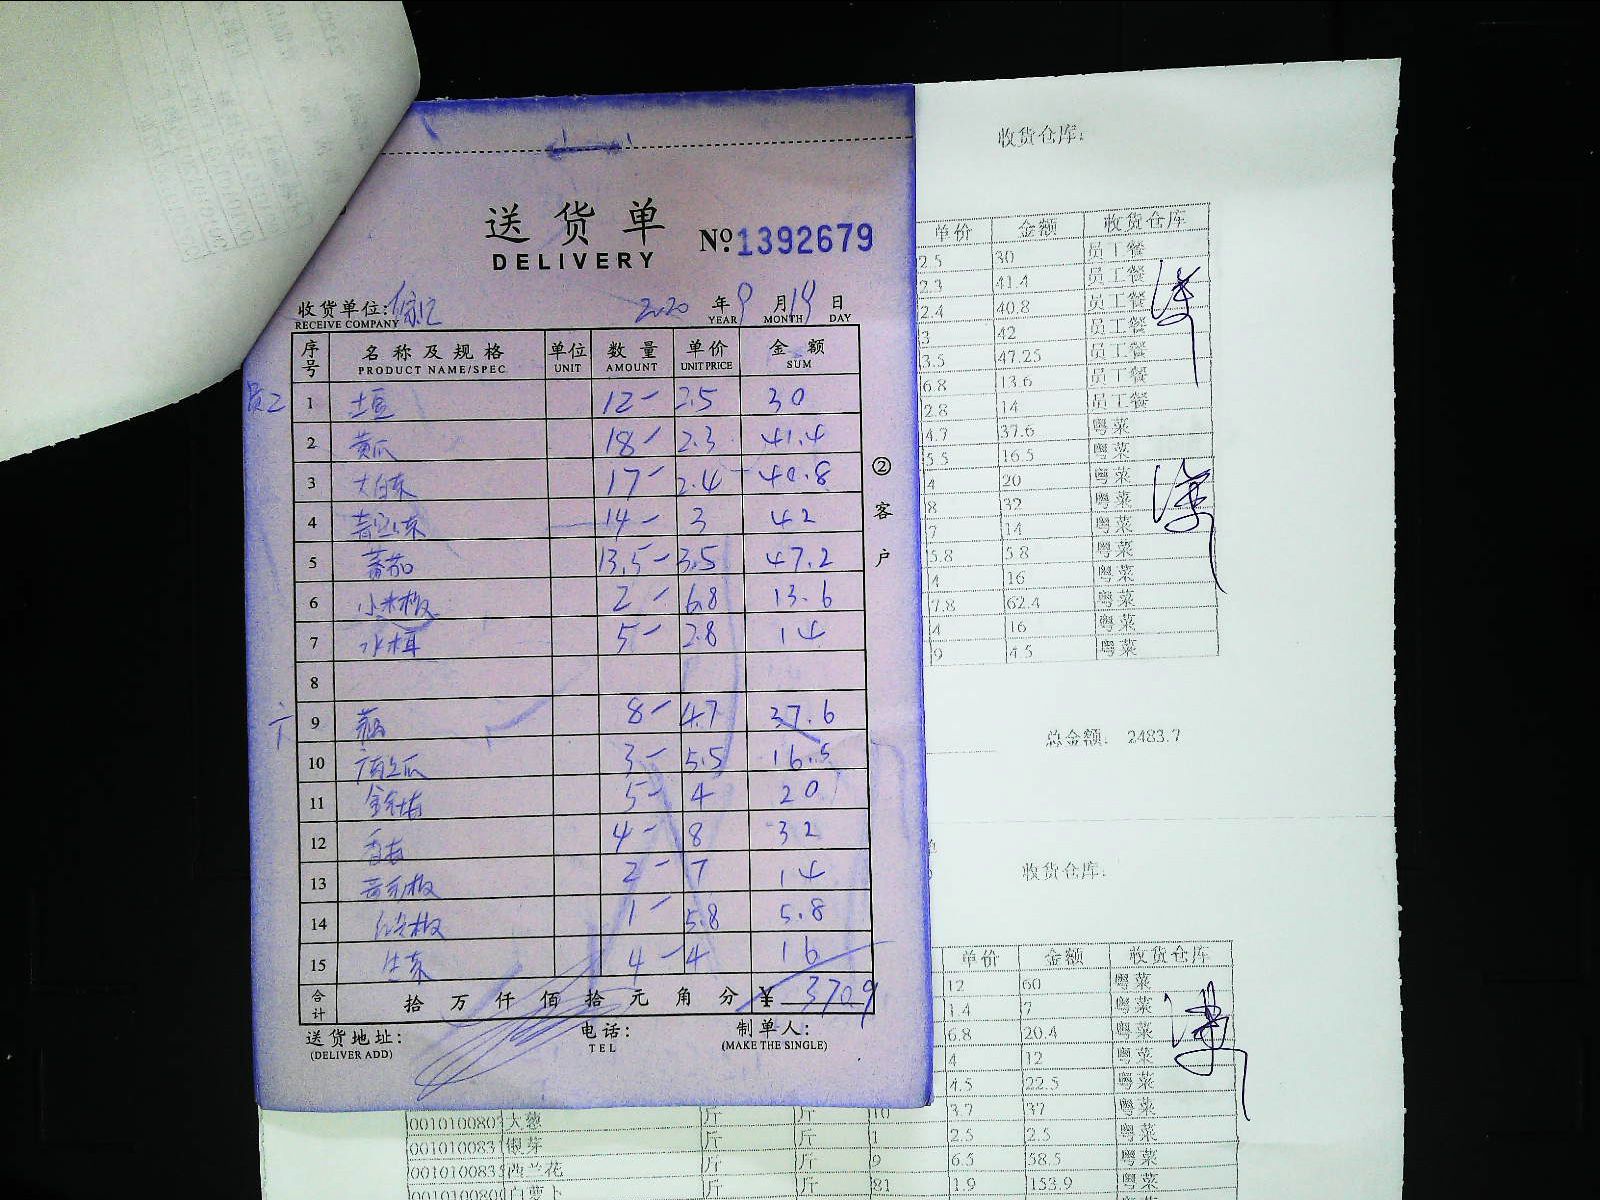 送货单
DELIVERY
№1392679
收货单位:
RECEIVE COMPANY
2020 年 9 月 19 日
YEAR MONTH DAY
序号 名称及规格 单位 数量 单价 金额
PRODUCT NAME/SPEC UNIT AMOUNT UNIT PRICE SUM
员工 1 土豆 12- 2.5 30
2 黄瓜 18- 2.3 41.4
3 大白菜 17- 2.4 40.8
4 14- 3 42
5 蕃茄 13.5- 3.5 47.2
6 小米椒 2- 6.8 13.6
7 水 5- 2.8 14
8
9 8- 4.7 37.6
10 3- 5.5 16.5
11 5- 4 20
12 4- 8 32
13 2- 7 14
14 1- 5.8 5.8
15 生菜 4-4 16
合计 拾 万 仟 佰 拾 元 角 分 ¥ 370.9
送货地址: 电话: 制单人:
(DELIVER ADD) TEL (MAKE THE SINGLE)
②客户
收货仓库:
单价 金额 收货仓库
2.5 30 员工餐
2.3 41.4 员工餐
2.4 40.8 员工餐
3 42 员工餐
3.5 47.25 员工餐
6.8 13.6 员工餐
2.8 14 员工餐
4.7 37.6 粤菜
5.5 16.5 粤菜
4 20 粤菜
8 32 粤菜
7 14 粤菜
5.8 5.8 粤菜
4 16 粤菜
7.8 62.4 粤菜
4 16 粤菜
9 4.5 粤菜
总金额: 2483.7
收货仓库:
单价 金额 收货仓库
12 60 粤菜
1.4 7 粤菜
6.8 20.4 粤菜
4 12 粤菜
4.5 22.5 粤菜
001010080 大葱 斤 斤 10 3.7 37 粤菜
001010083 银芽 斤 斤 1 2.5 2.5 粤菜
001010083 西兰花 斤 斤 9 6.5 58.5 粤菜
001010080 白萝卜 斤 斤 81 1.9 153.9 粤菜